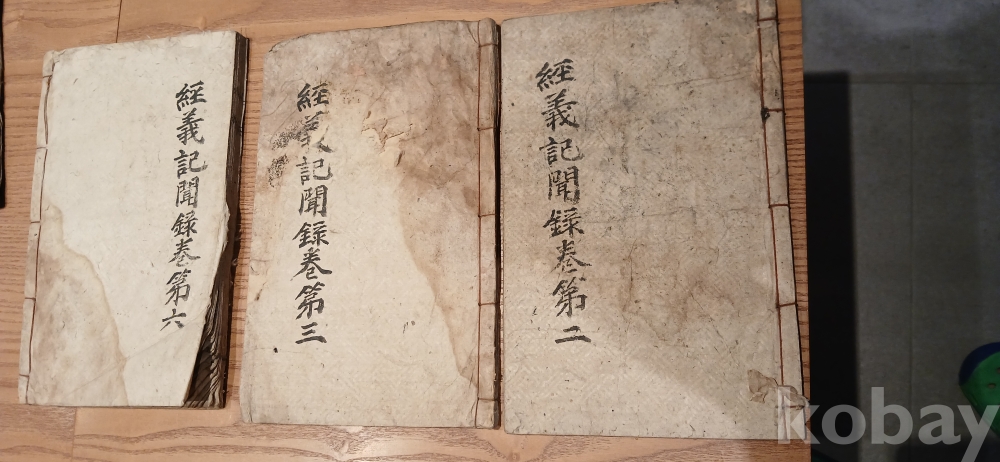 經義記聞錄卷第二
經義記聞錄卷第三
經義記聞錄卷第六
kobay